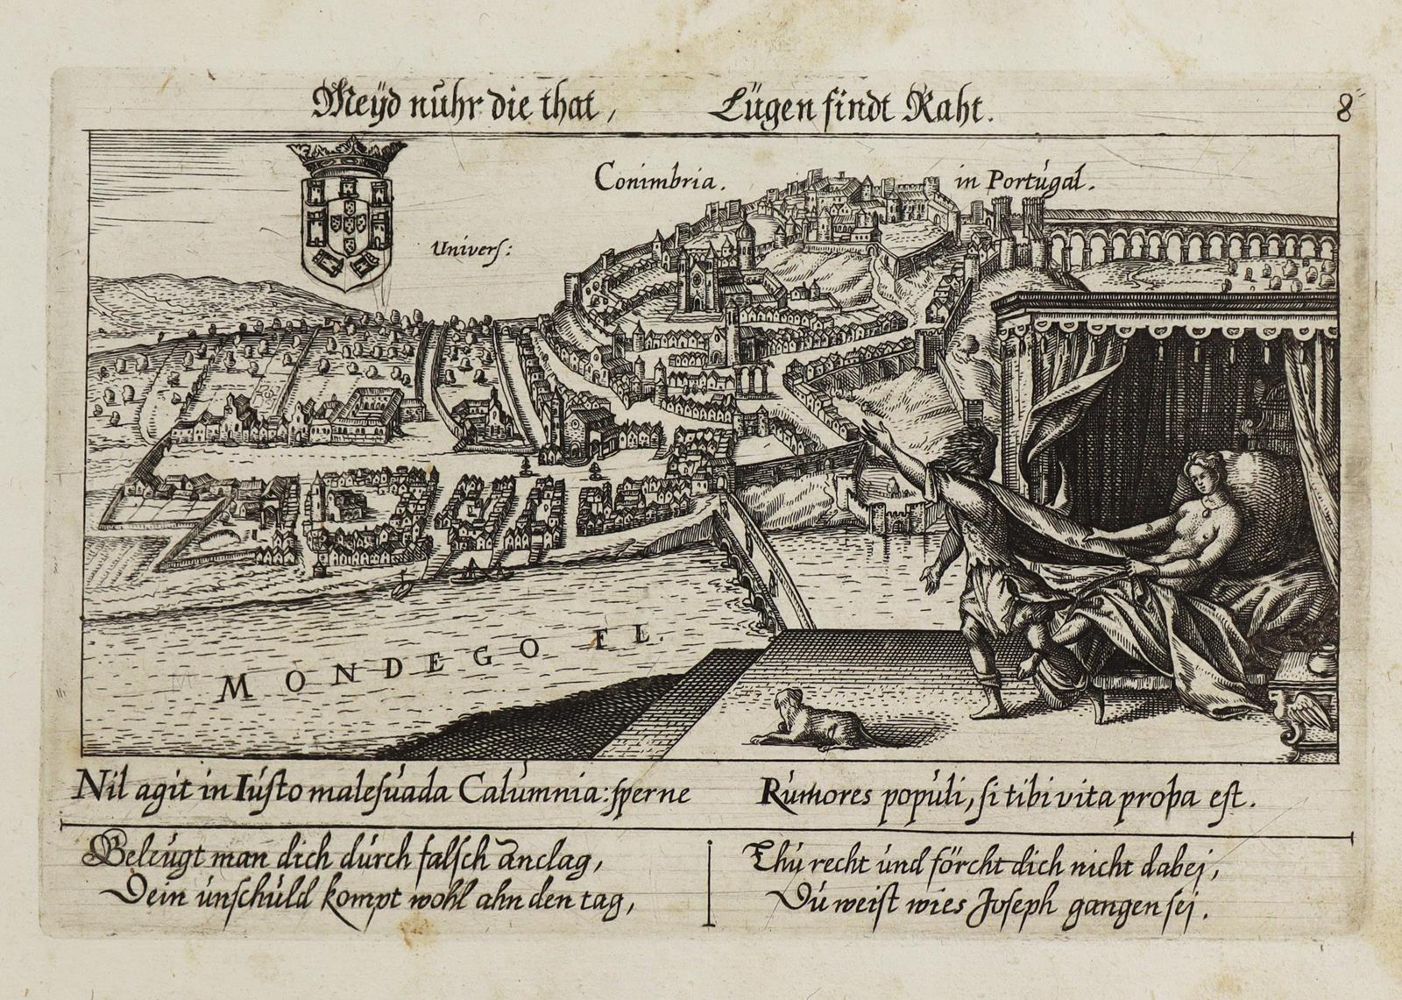 Meÿd nuhr die that, Lügen findt Raht. 8
Conimbria. in Portugal.
Univers:
MONDEGO FL.
Nil agit in Iusto malesuada Calumnia: sperne Rumores populi, si tibi vita proba est.
Beleugt man dich durch falsch anclag,
Dein unschuld kompt wohl ahn den tag,
Thu recht und förcht dich nicht dabej,
Du weist wies Joseph gangen sej.